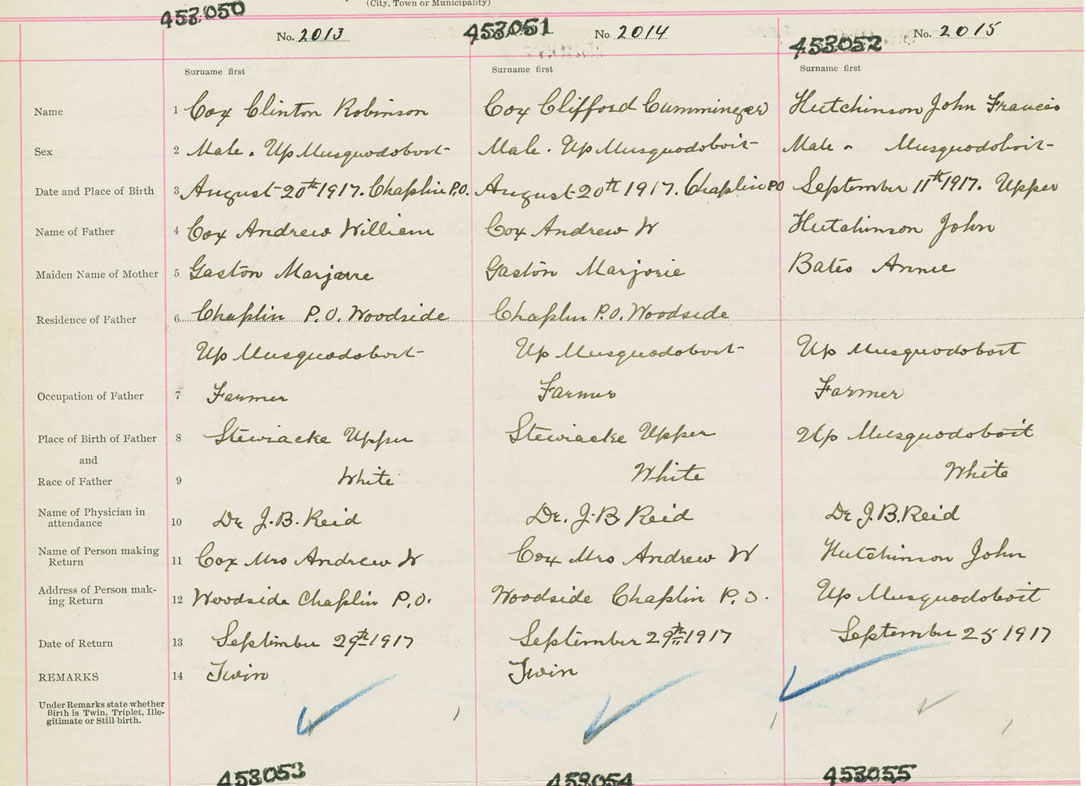 (City, Town or Municipality)
453050 453051 453052
No. 2013 No 2014 No. 2015
Surname first Surname first Surname first
Name 1 Cox Clinton Robinson Cox Clifford Cumminger Hutchinson John Francis
Sex 2 Male. Up Musquodoboit Male. Up Musquodoboit Male - Musquodoboit
Date and Place of Birth 3 August 20th 1917. Chaplin P.O. August 20th 1917. Chaplin PO September 11th 1917. Upper
Name of Father 4 Cox Andrew William Cox Andrew W Hutchinson John
Maiden Name of Mother 5 Gaston Marjorie Gaston Marjorie Bates Annie
Residence of Father 6 Chaplin P.O. Woodside Chaplin P.O. Woodside
Up Musquodoboit Up Musquodoboit Up Musquodoboit
Occupation of Father 7 Farmer Farmer Farmer
Place of Birth of Father 8 Stewiacke Upper Stewiacke Upper Up Musquodoboit
and
Race of Father 9 White White White
Name of Physician in
attendance 10 Dr J.B. Reid Dr. J.B Reid Dr J.B. Reid
Name of Person making
Return 11 Cox Mrs Andrew W Cox Mrs Andrew W Hutchinson John
Address of Person mak-
ing Return 12 Woodside Chaplin P.O. Woodside Chaplin P.O. Up Musquodoboit
Date of Return 13 September 29th 1917 September 29th 1917 September 25 1917
REMARKS 14 Twin Twin
Under Remarks state whether
Birth is Twin, Triplet, Ille-
gitimate or Still birth.
453053 453054 453055